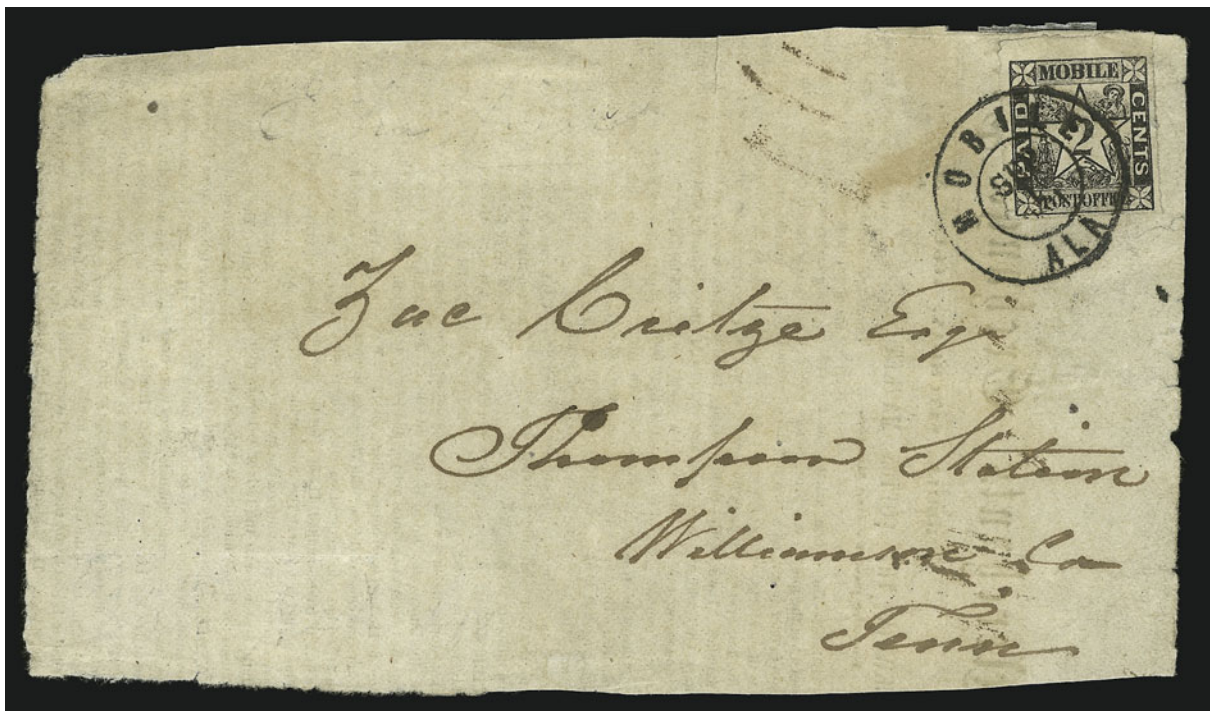 MOBILE
PAID
CENTS
2
POST OFFICE
MOBILE
ALA
Zac Critze Esqr
Thompson Station
Williamson Co
Tenn